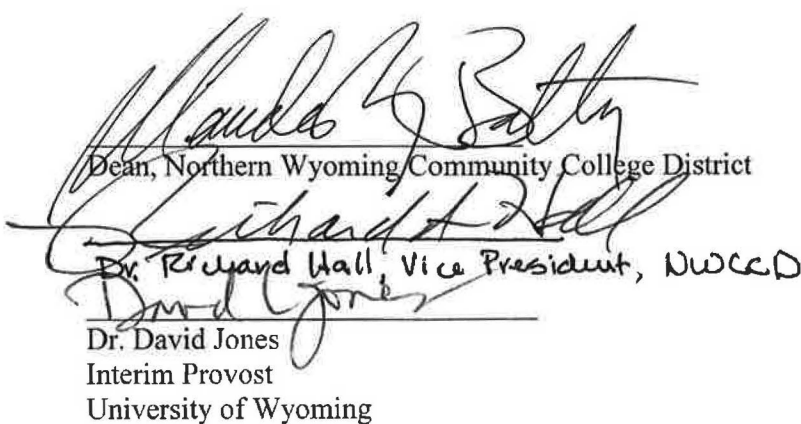 Dean, Northern Wyoming Community College District
Richard A Hall
Dr. Richard Hall, Vice President, NWCCD
David L Jones
Dr. David Jones
Interim Provost
University of Wyoming